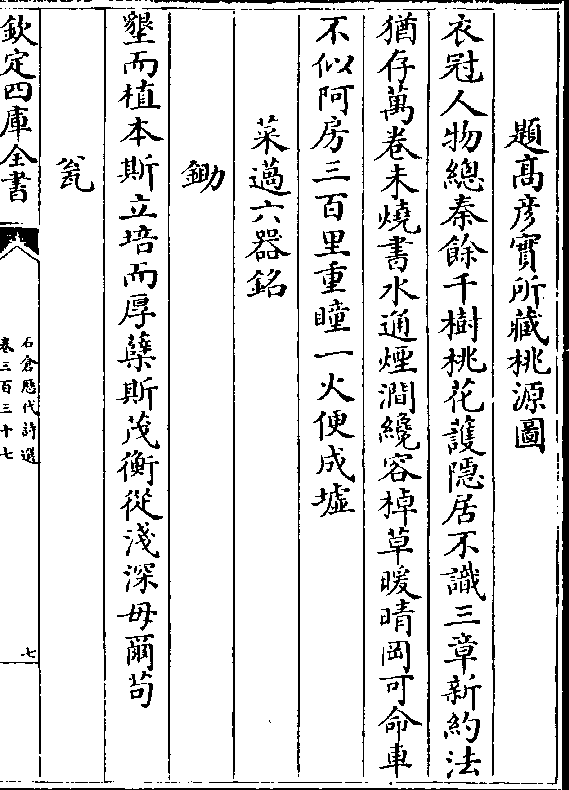 題髙彦實所藏桃源圖
衣冠人物總秦餘千樹桃花護隱居不識三章新約法
猶存萬卷未燒書水通煙澗纔容棹草暖晴岡可命車
不似阿房三百里重瞳一火便成墟
菜薖六器銘
鋤
墾而植本斯立培而厚蘖斯茂衡從淺深毋爾苟
瓮
欽定四庫全書
石倉歷代詩選
卷三百三十七
七